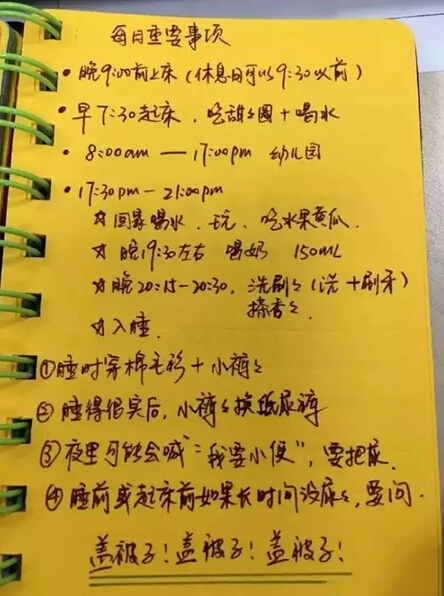 每日重要事项
• 晚9:00前上床（休息日可以9:30以前）
• 早7:30起床，吃甜甜圈+喝水
• 8:00am — 17:00pm 幼儿园
• 17:30pm — 21:00pm
☆ 回家喝水、玩、吃水果黄瓜.
☆ 晚19:30左右 喝奶 150mL
☆ 晚20:15-20:30, 洗刷刷（洗+刷牙）
搽香香.
☆ 入睡.
①睡时穿棉毛衫+小裤裤
②睡得很实后，小裤裤换纸尿裤
③夜里可能会喊“我要小便”，要把尿.
④睡前或起床前如果长时间没尿尿，要问.
盖被子！盖被子！盖被子！